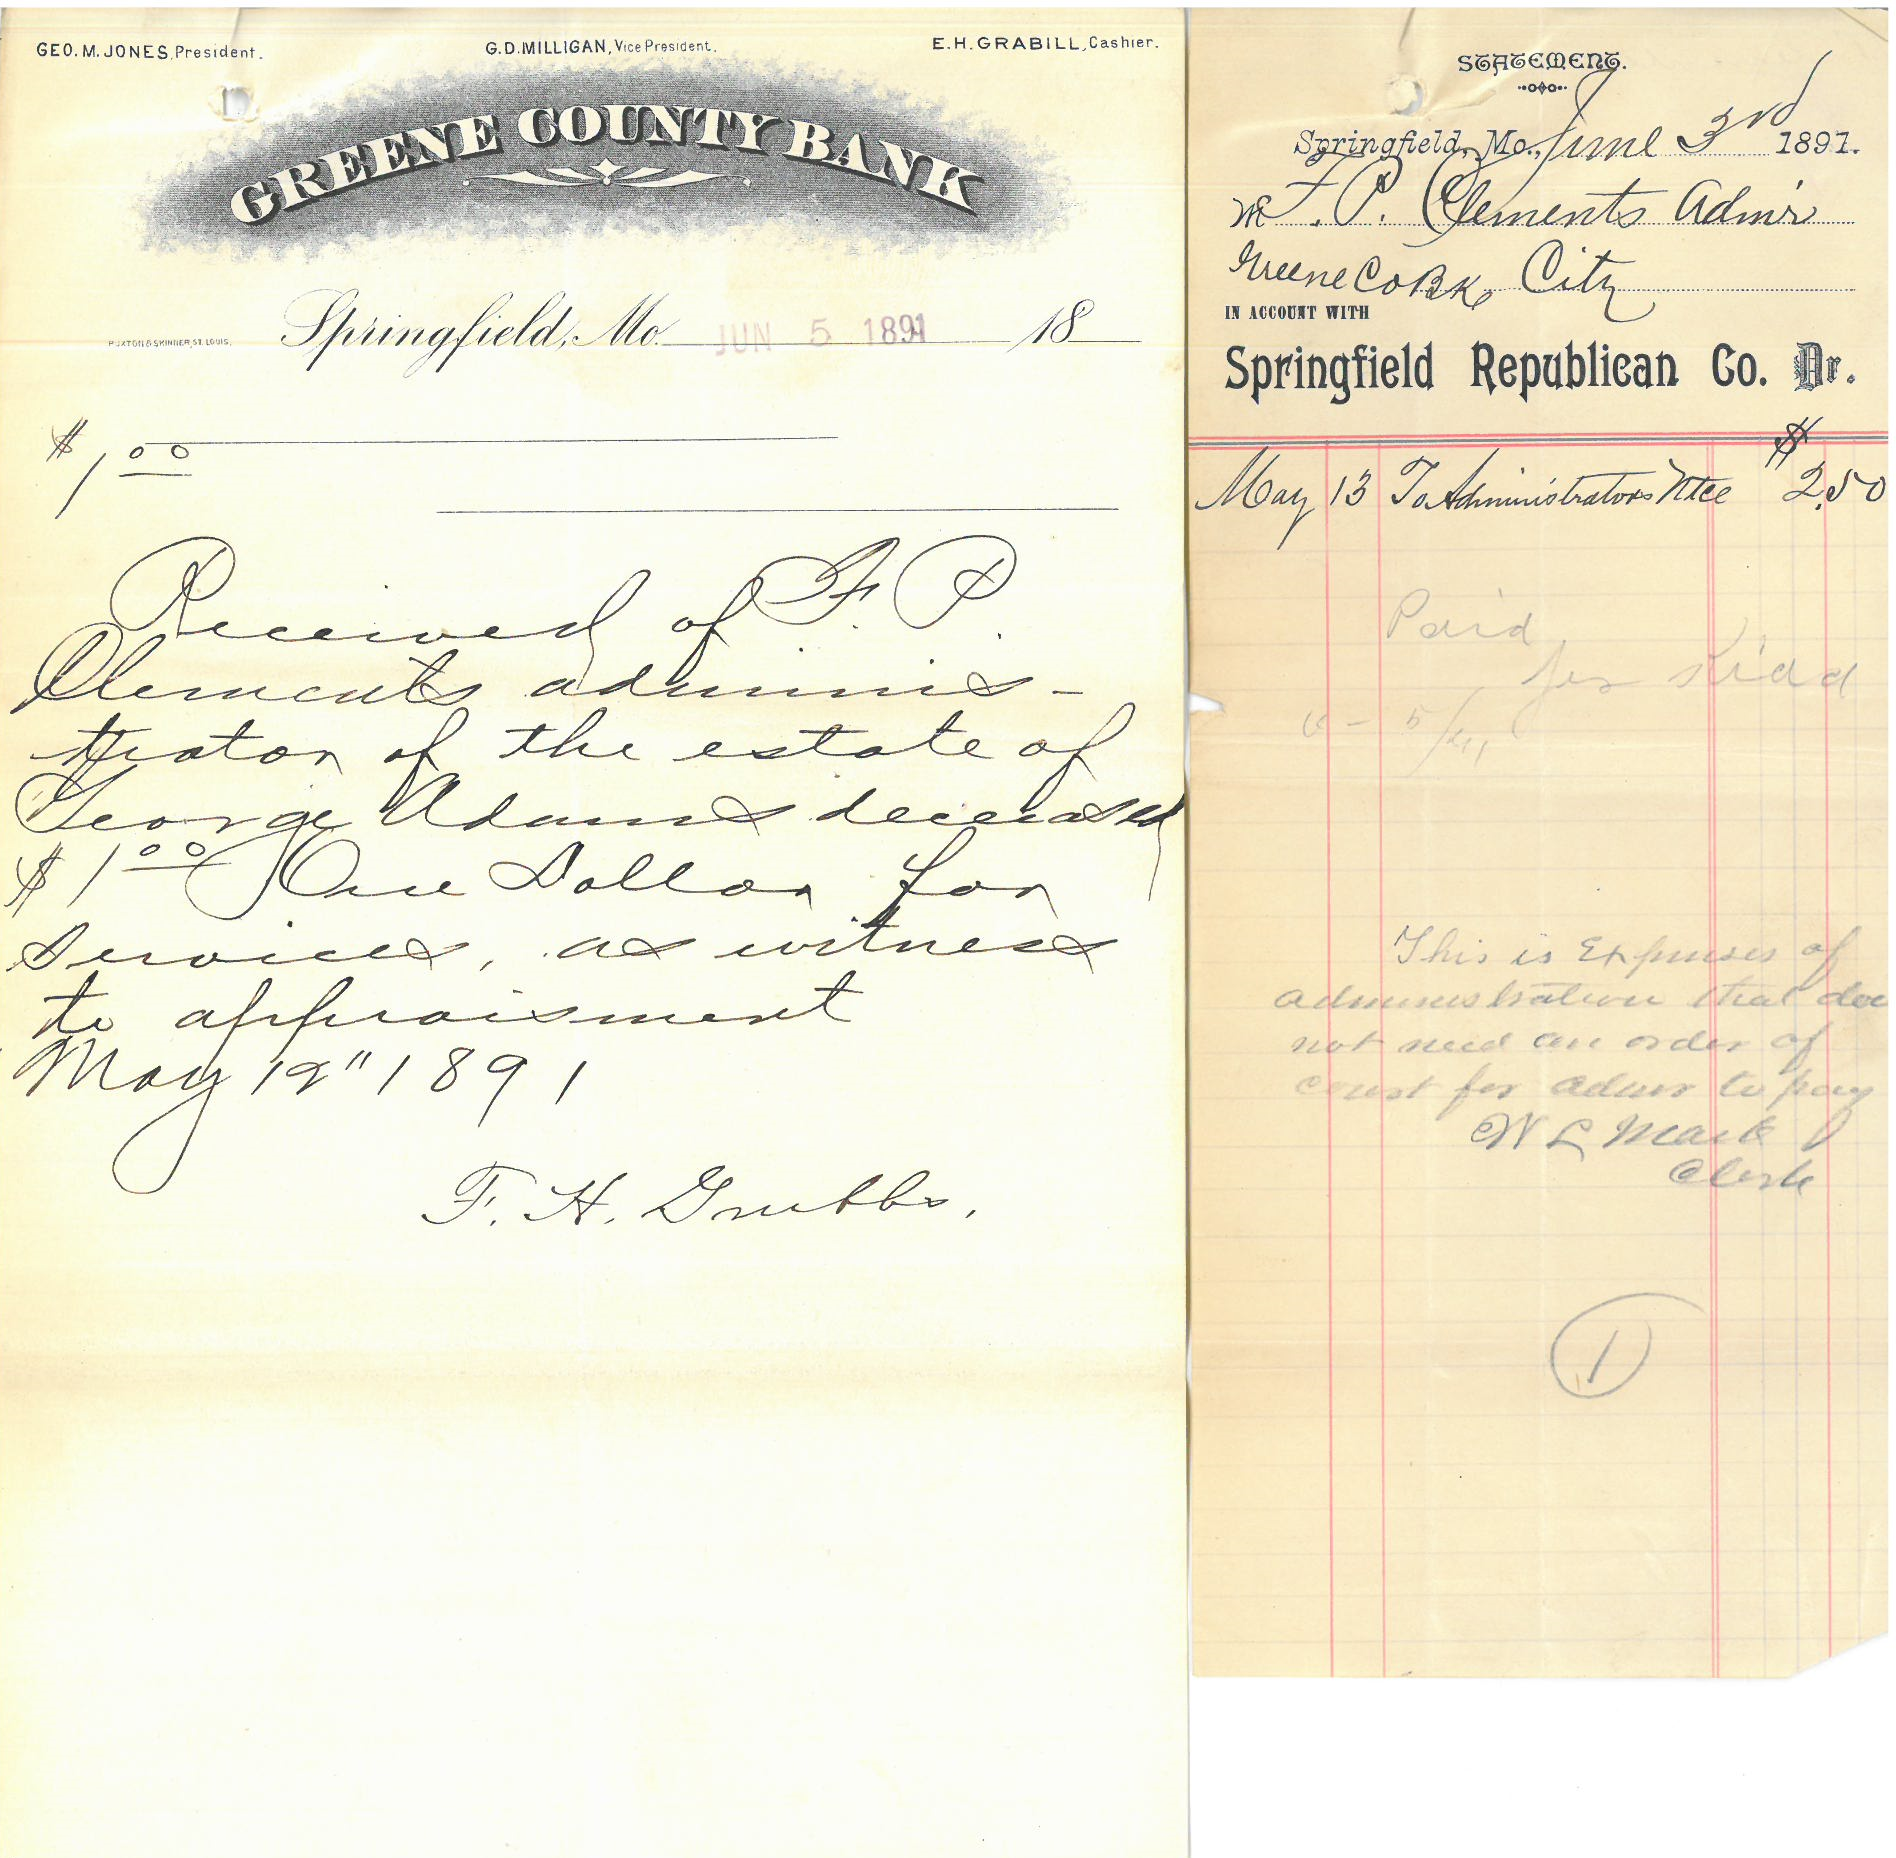 GEO. M. JONES, President.
G. D. MILLIGAN, Vice President.
E. H. GRABILL, Cashier.
GREENE COUNTY BANK
BUXTON & SKINNER, ST. LOUIS.
Springfield, Mo. JUN 5 1891 18
$ 1.00
Received of F. P.
Clements adminis-
trator of the estate of
George Adams deceased
$ 1.00 One Dollar for
services, as witness
to appraisment
May 12" 1891
F. H. Grubbs.
STATEMENT.
Springfield, Mo., June 3rd 1891.
M F. P. Clements Admr
Greene Co Bk City
IN ACCOUNT WITH
Springfield Republican Co. Dr.
$
May 13 To Administrators Ntce $2.50
Paid
Kidd
This is Expenses of
administration that doe
not need an order of
court for admr to pay
W L Mack
Clerk
1